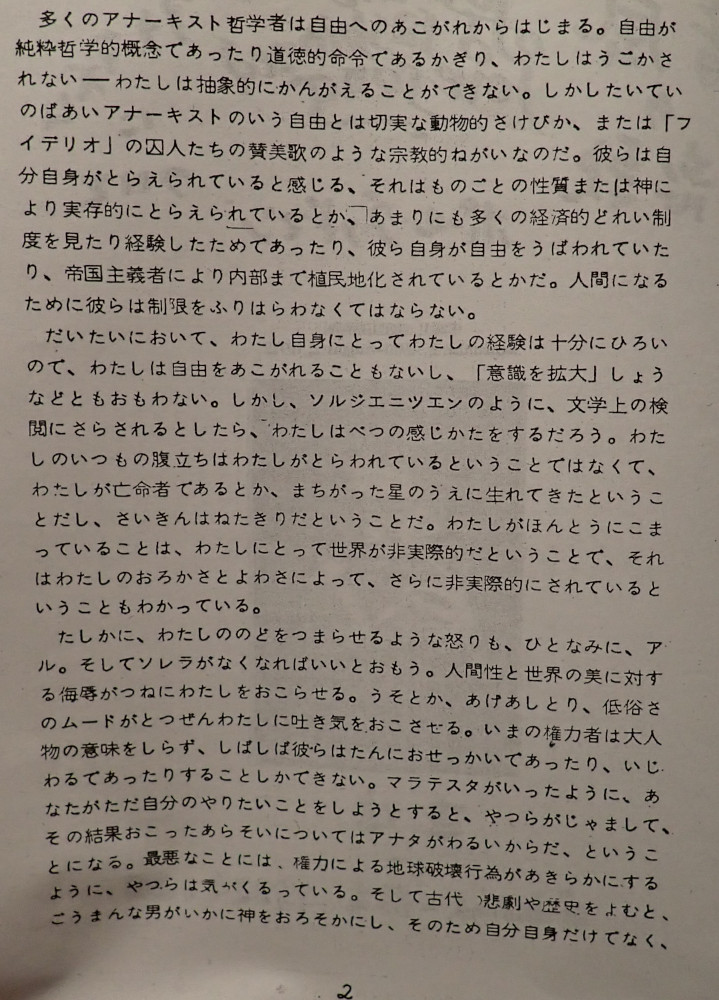 多くのアナーキスト哲学者は自由へのあこがれからはじまる。自由が
純粋哲学的概念であったり道徳的命令であるかぎり、わたしはうごかさ
れない——わたしは抽象的にかんがえることができない。しかしたいてい
のばあいアナーキストのいう自由とは切実な動物的さけびか、または「フ
イデリオ」の囚人たちの賛美歌のような宗教的ねがいなのだ。彼らは自
分自身がとらえられていると感じる、それはものごとの性質または神に
より実存的にとらえられているとか、あまりにも多くの経済的どれい制
度を見たり経験したためであったり、彼ら自身が自由をうばわれていた
り、帝国主義者により内部まで植民地化されているとかだ。人間になる
ために彼らは制限をふりはらわなくてはならない。
だいたいにおいて、わたし自身にとってわたしの経験は十分にひろい
ので、わたしは自由をあこがれることもないし、「意識を拡大」しょう
などともおもわない。しかし、ソルジエニツエンのように、文学上の検
閲にさらされるとしたら、わたしはべつの感じかたをするだろう。わた
しのいつもの腹立ちはわたしがとらわれているということではなくて、
わたしが亡命者であるとか、まちがった星のうえに生れてきたというこ
とだし、さいきんはねたきりだということだ。わたしがほんとうにこま
っていることは、わたしにとって世界が非実際的だということで、それ
はわたしのおろかさとよわさによって、さらに非実際的にされていると
いうこともわかっている。
たしかに、わたしののどをつまらせるような怒りも、ひとなみに、ア
ル。そしてソレラがなくなればいいとおもう。人間性と世界の美に対す
る侮辱がつねにわたしをおこらせる。うそとか、あげあしとり、低俗さ
のムードがとつぜんわたしに吐き気をおこさせる。いまの権力者は大人
物の意味をしらず、しばしば彼らはたんにおせっかいであったり、いじ
わるであったりすることしかできない。マラテスタがいったように、あ
なたがただ自分のやりたいことをしようとすると、やつらがじゃまして、
その結果おこったあらそいについてはアナタがわるいからだ、というこ
とになる。最悪なことには、権力による地球破壊行為があきらかにする
ように、やつらは気がくるっている。そして古代 悲劇や歴史をよむと、
ごうまんな男がいかに神をおろそかにし、そのため自分自身だけでなく、
2